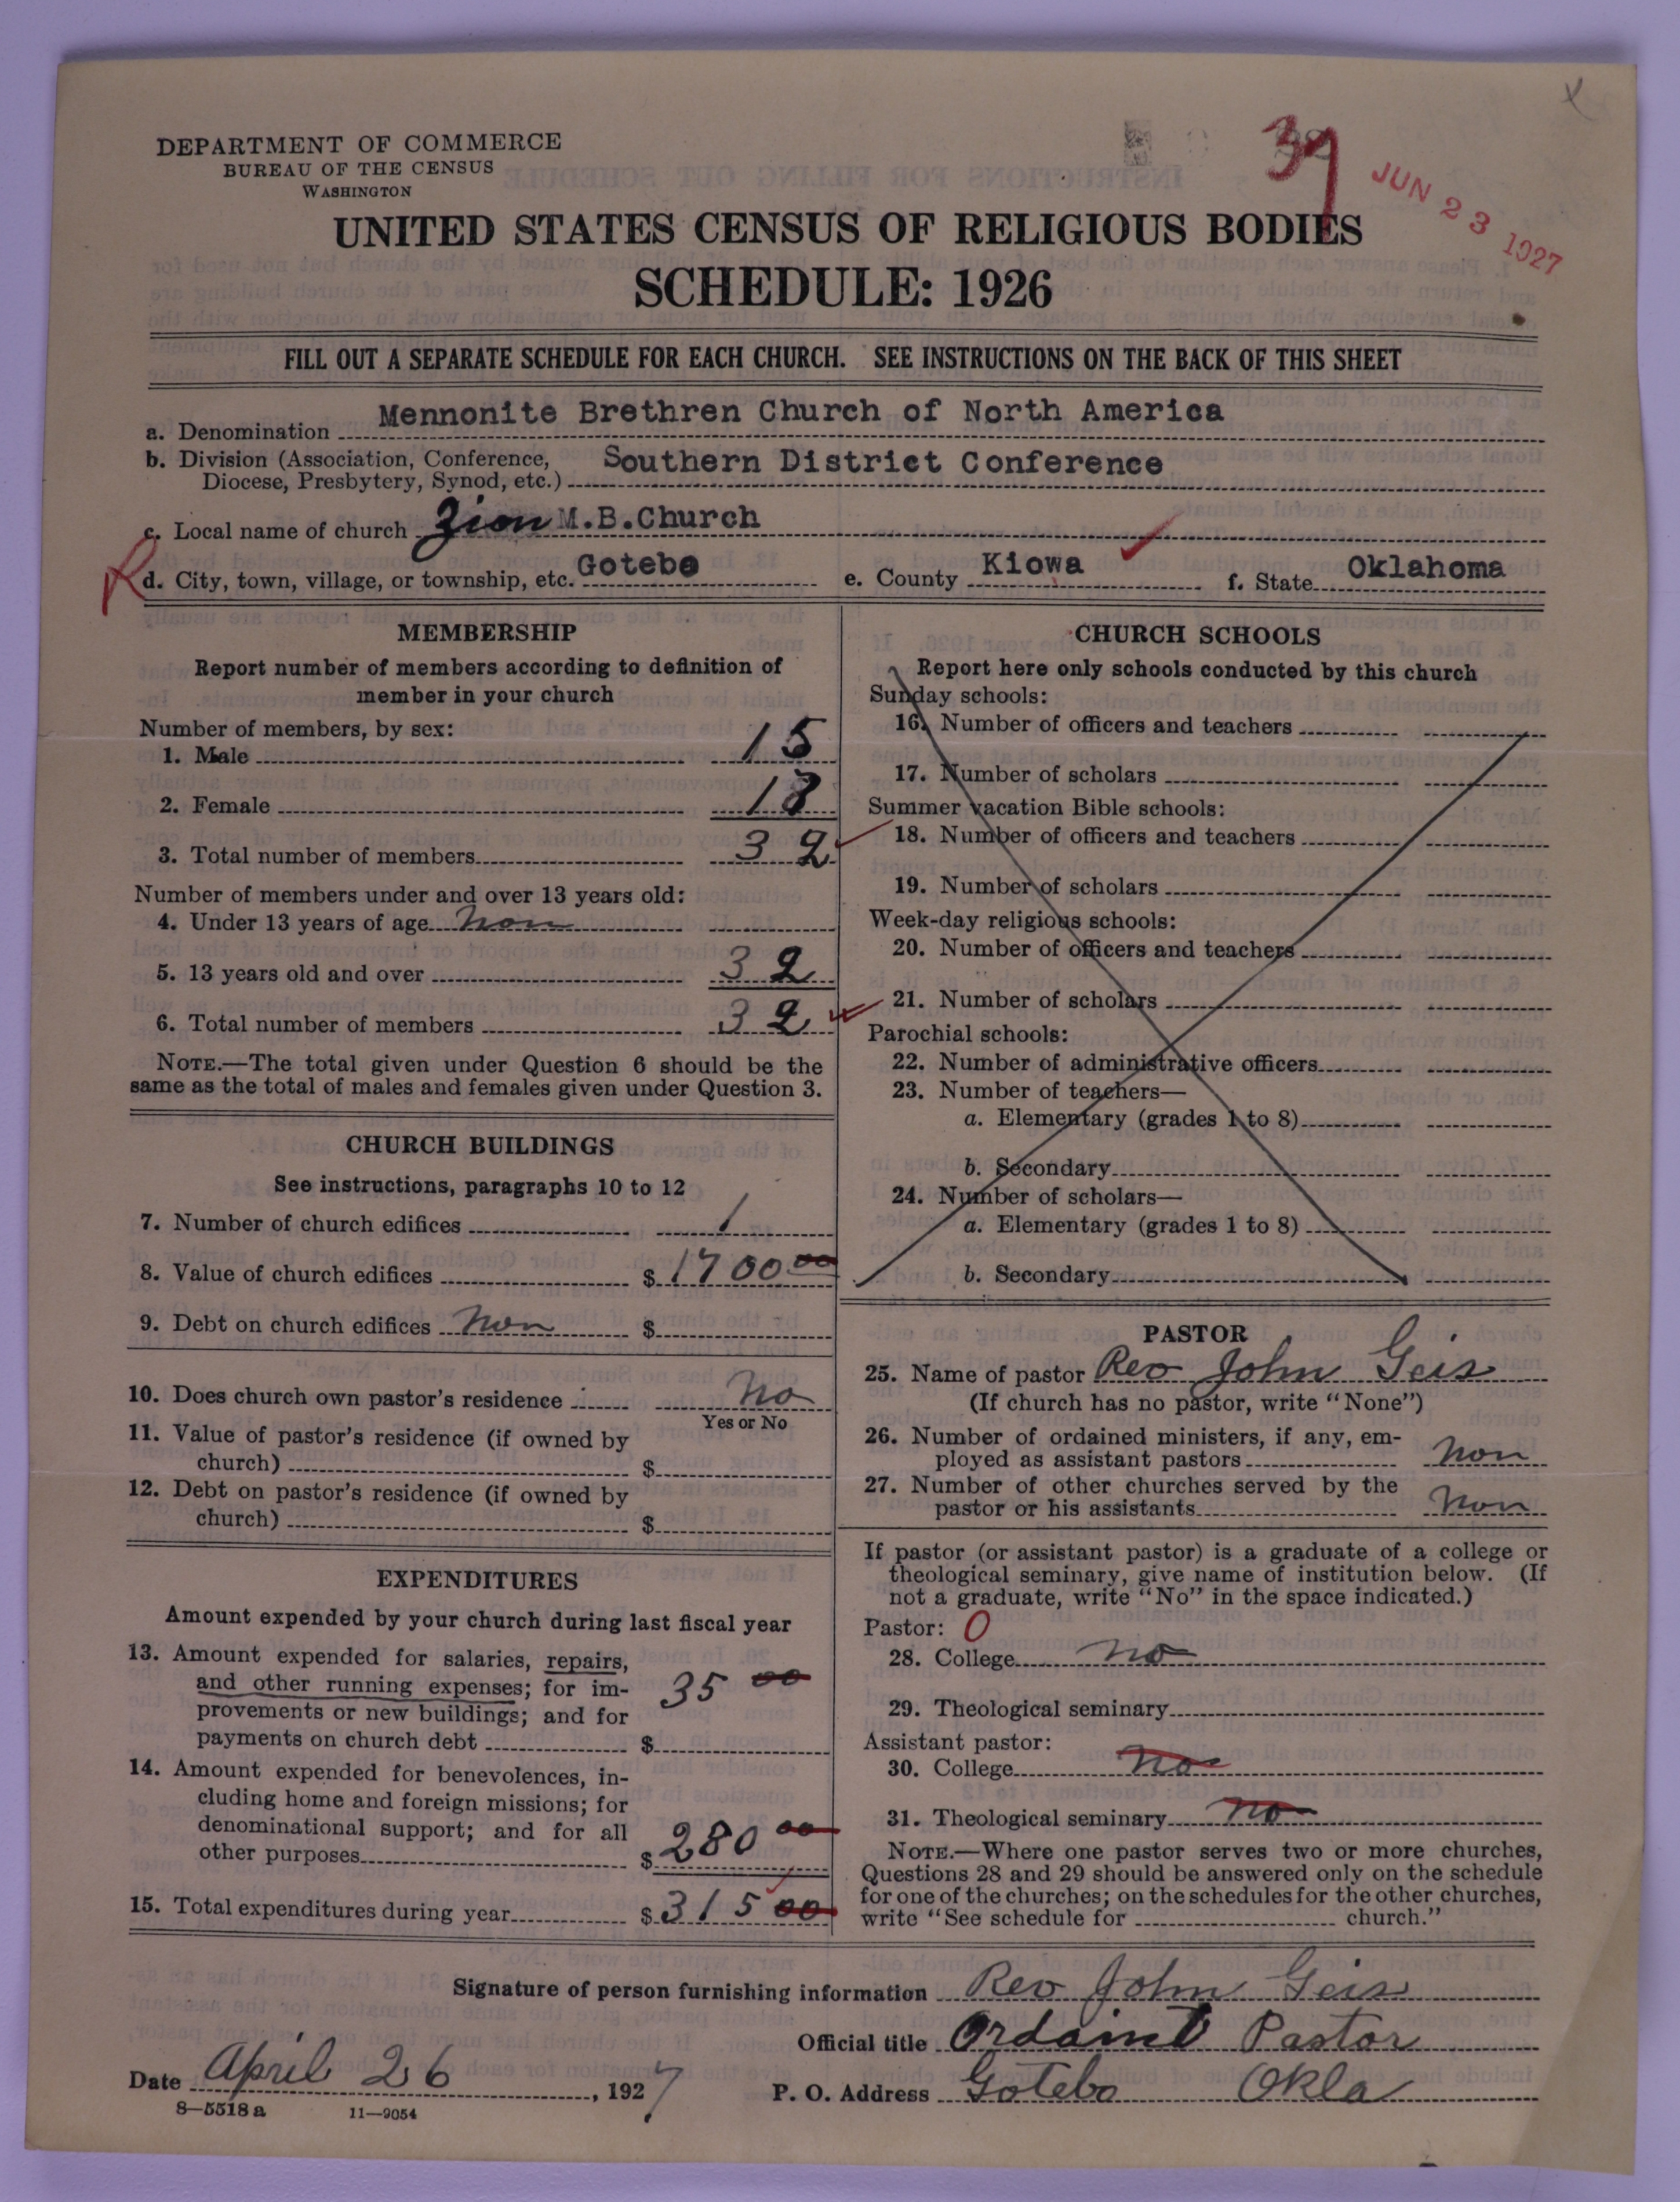 DEPARTMENT OF COMMERCE
BUREAU OF THE CENSUS
WASHINGTON
37
JUN 23 1927
UNITED STATES CENSUS OF RELIGIOUS BODIES
SCHEDULE: 1926
FILL OUT A SEPARATE SCHEDULE FOR EACH CHURCH. SEE INSTRUCTIONS ON THE BACK OF THIS SHEET
a. Denomination Mennonite Brethren Church of North America
b. Division (Association, Conference, Diocese, Presbytery, Synod, etc.) Southern District Conference
c. Local name of church Zion M.B.Church
R
d. City, town, village, or township, etc. Gotebo e. County Kiowa f. State Oklahoma
MEMBERSHIP
Report number of members according to definition of
member in your church
Number of members, by sex:
1. Male 15
2. Female
3. Total number of members 32
Number of members under and over 13 years old:
4. Under 13 years of age non
5. 13 years old and over 32
6. Total number of members 32
NOTE.—The total given under Question 6 should be the
same as the total of males and females given under Question 3.
CHURCH BUILDINGS
See instructions, paragraphs 10 to 12
7. Number of church edifices 1
8. Value of church edifices $ 1700 00
9. Debt on church edifices non $
10. Does church own pastor's residence no
Yes or No
11. Value of pastor's residence (if owned by
church) $
12. Debt on pastor's residence (if owned by
church) $
EXPENDITURES
Amount expended by your church during last fiscal year
13. Amount expended for salaries, repairs,
and other running expenses; for im-
provements or new buildings; and for
payments on church debt $ 35 00
14. Amount expended for benevolences, in-
cluding home and foreign missions; for
denominational support; and for all
other purposes $ 280 00
15. Total expenditures during year $ 315 00
CHURCH SCHOOLS
Report here only schools conducted by this church
Sunday schools:
16. Number of officers and teachers
17. Number of scholars
Summer vacation Bible schools:
18. Number of officers and teachers
19. Number of scholars
Week-day religious schools:
20. Number of officers and teachers
21. Number of scholars
Parochial schools:
22. Number of administrative officers
23. Number of teachers—
a. Elementary (grades 1 to 8)
b. Secondary
24. Number of scholars—
a. Elementary (grades 1 to 8)
b. Secondary
PASTOR
25. Name of pastor Rev John Geis
(If church has no pastor, write "None")
26. Number of ordained ministers, if any, em-
ployed as assistant pastors non
27. Number of other churches served by the
pastor or his assistants non
If pastor (or assistant pastor) is a graduate of a college or
theological seminary, give name of institution below. (If
not a graduate, write "No" in the space indicated.)
Pastor: 0
28. College no
29. Theological seminary
Assistant pastor:
30. College no
31. Theological seminary no
NOTE.—Where one pastor serves two or more churches,
Questions 28 and 29 should be answered only on the schedule
for one of the churches; on the schedules for the other churches,
write "See schedule for church."
Signature of person furnishing information Rev John Geis
Official title Ordaint Pastor
Date April 26, 1927 P. O. Address Gotebo Okla
8—5518 a 11—9054